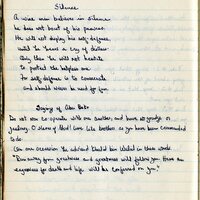 Silence
A wise man believes in silence
he does not boast of his prowess.
He will not display his self-defence
until he hears a cry of distress
Only then he will not hesitate
to protect the helpless one.
For self-defence is to
and should never be used for fun.
Saying of Abu Bakr
Do not non co-operate with one another, and have no grudge or
jealousy. O slaves of Allah! Live like brothers as you have been commanded
to do.
On one occasion he advised Khalid bin Walid in these words.
"Run away from greatness and greatness will follow you. Have an
eagerness for death and life will be conferred on you."